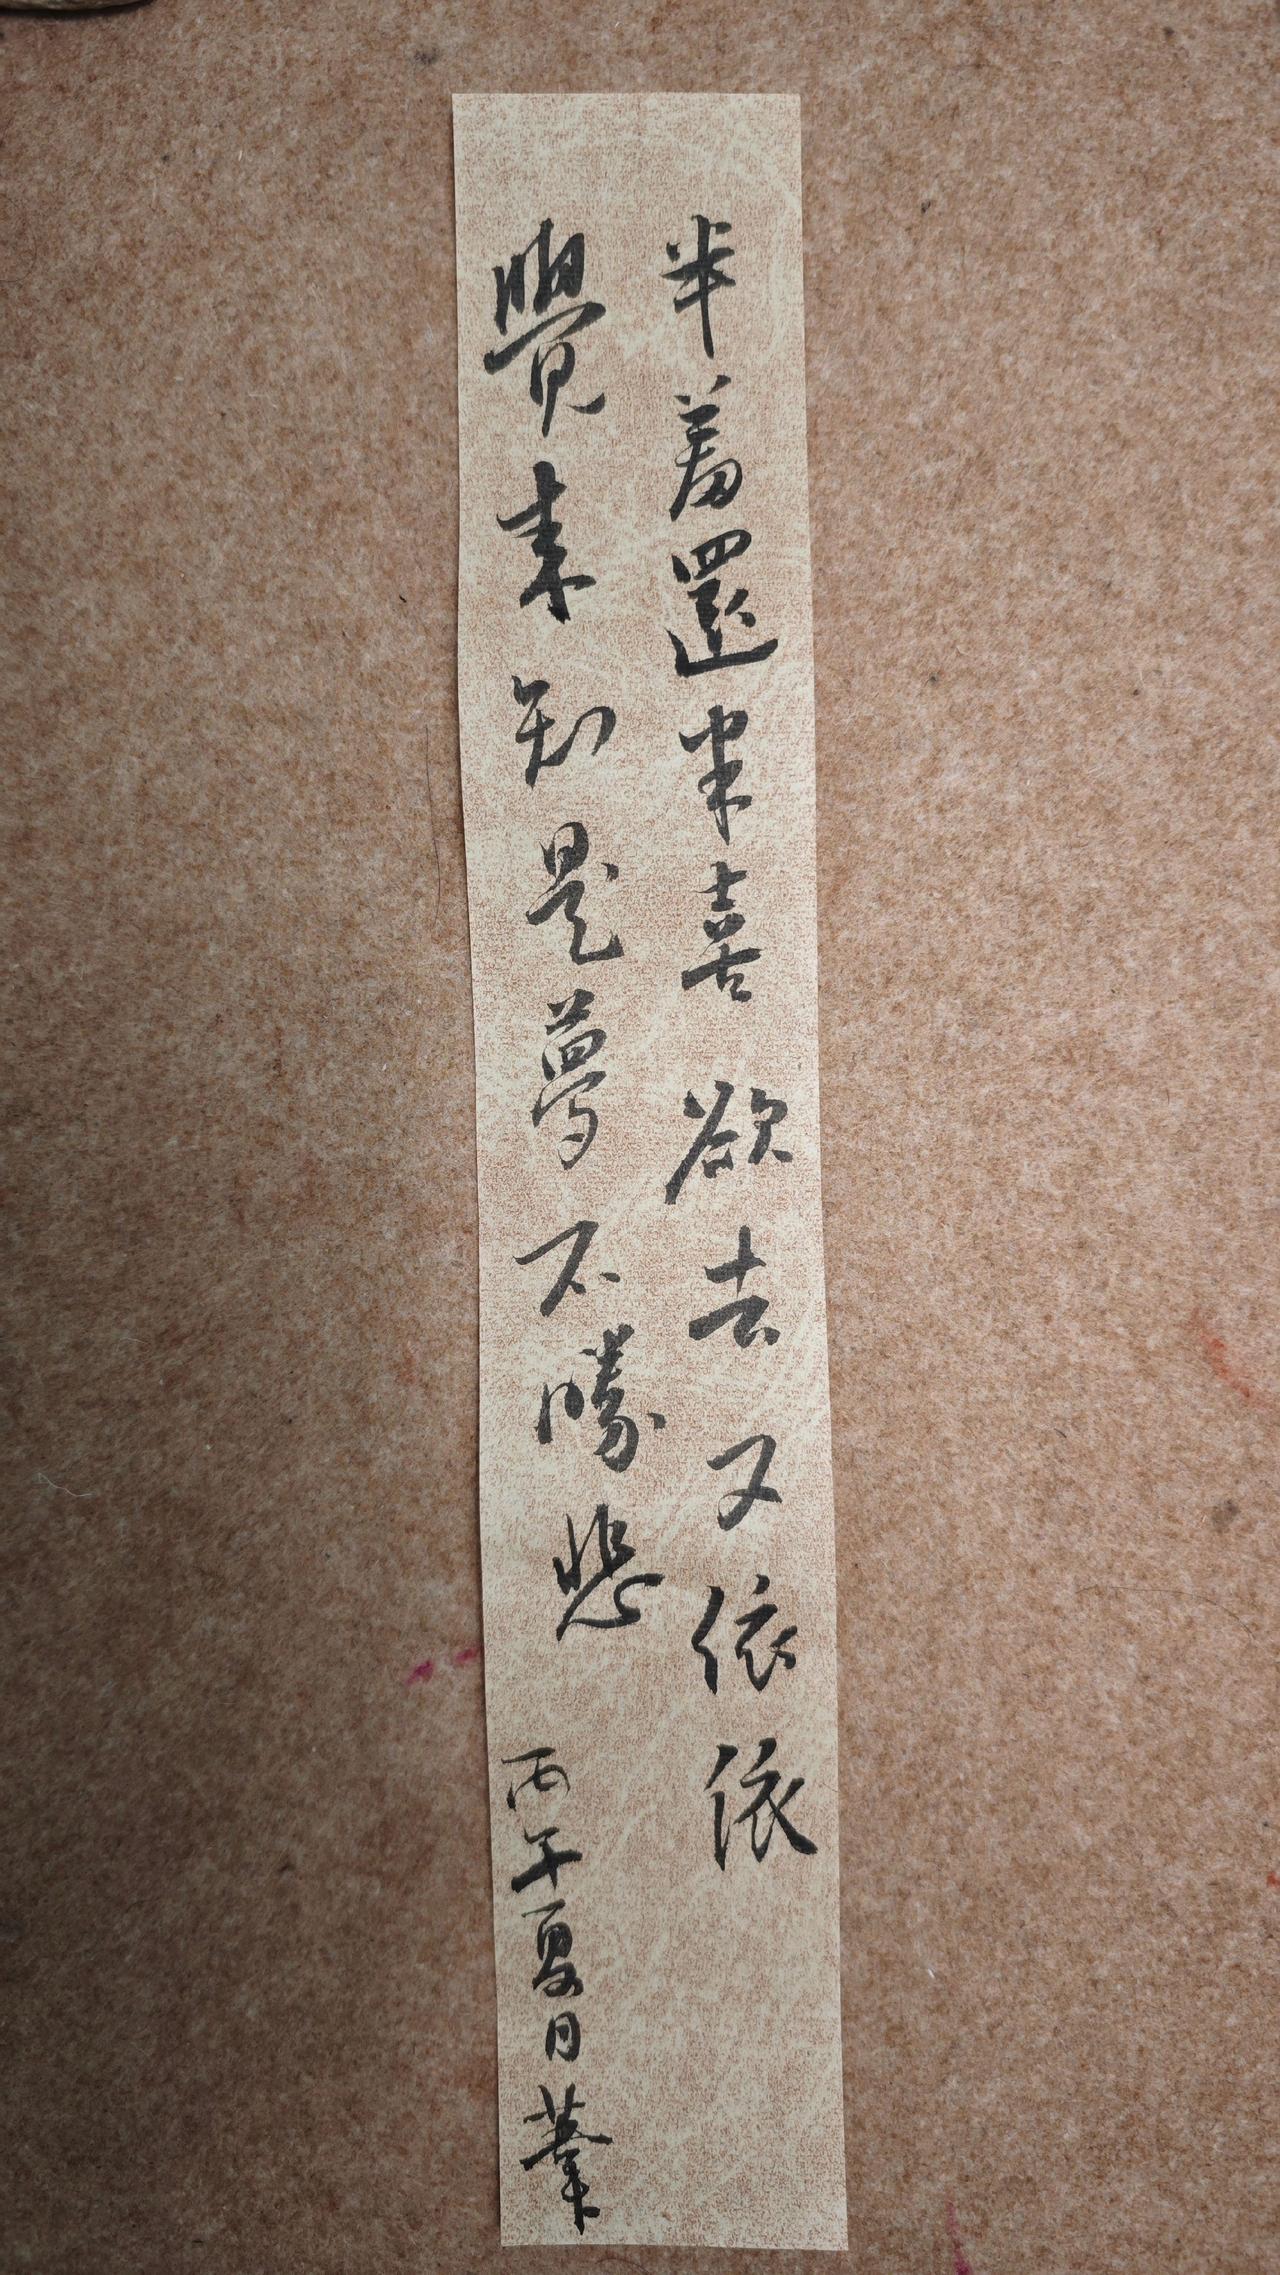 半羞還半喜欲去又依依
覺來知是夢不勝悲 丙午夏日蓁